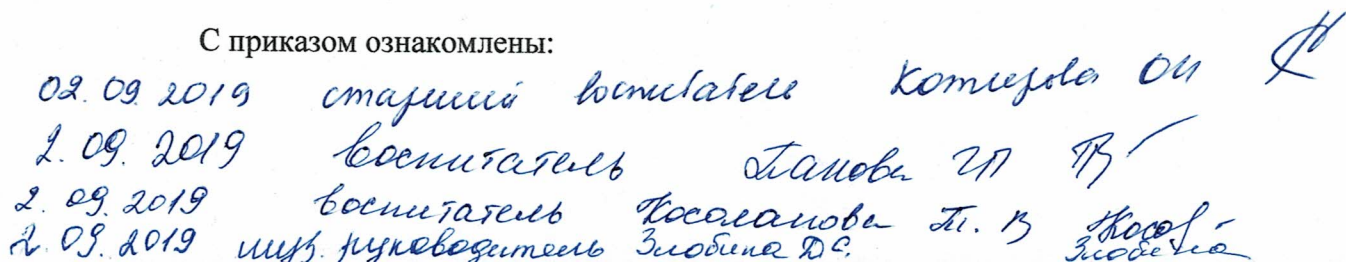 С приказом ознакомлены:
02.09.2019 старший воспитатель ОИ
2.09.2019 воспитатель Панова ГП
2.09.2019 воспитатель Косолапова Т. В Косо
2.09.2019 муз. руководитель Злобина Д.С. Злобина